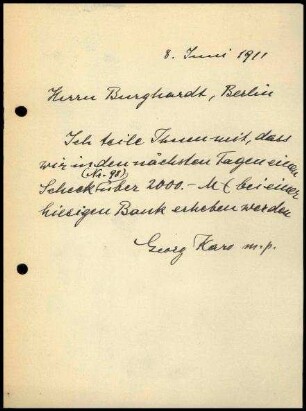 8. Juni 1911
Herrn Burghardt, Berlin
Ich teile Ihnen mit, dass
wir in den nächsten Tagen einen
(Nr. 98)
Scheck über 2000.- M bei einer
hiesigen Bank erheben werden
Georg Karo m.p.